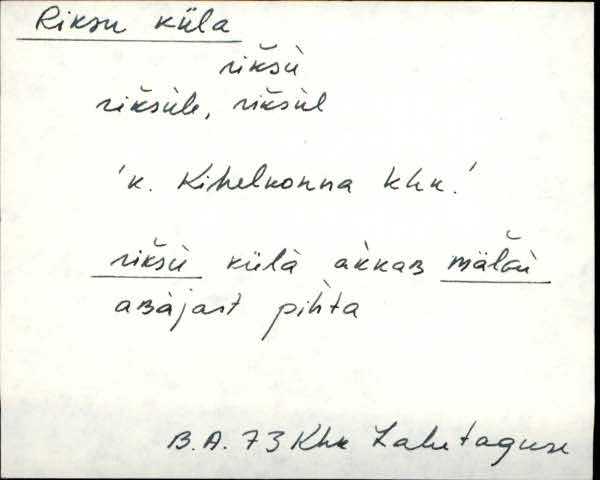 Riksu küla
riksù
riksùle, riksùl
'k. Kihelkonna khk.'
riksù külà akkaʙ
aʙàjast pihta
B.A. 73 Khk Lahetaguse